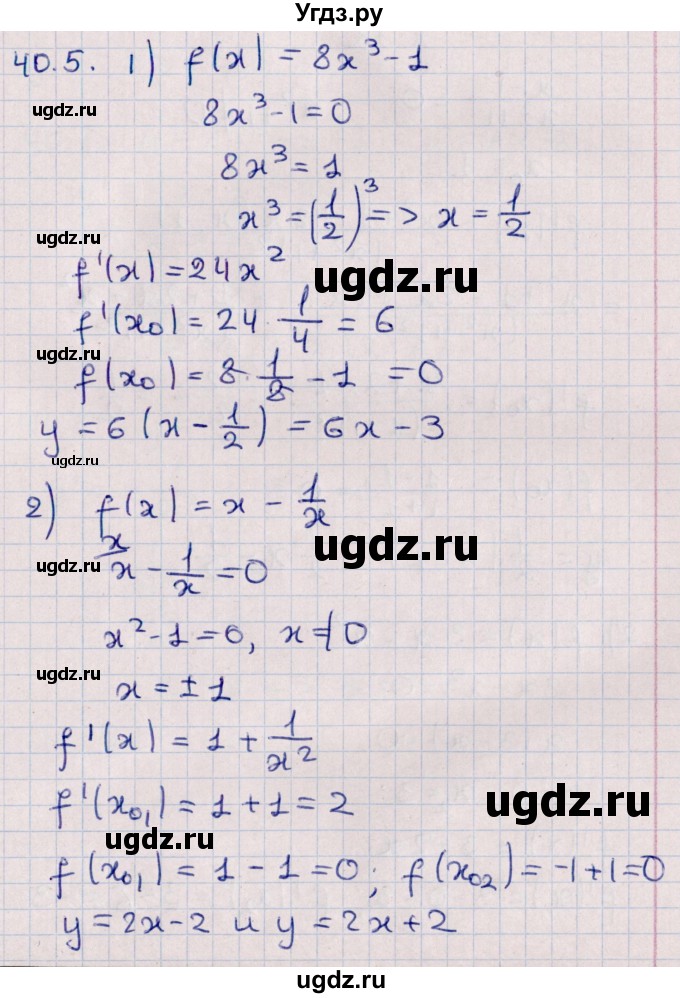 Угдз.ру
40.5. 1) f(x) = 8x³ - 1
8x³ - 1 = 0
ugdz.ru
8x³ = 1
x³ = (1/2)³ => x = 1/2
ugdz.ru
f'(x) = 24x²
ugdz.ru
f'(x₀) = 24 · 1/4 = 6
ugdz.ru
f(x₀) = 8 · 1/8 - 1 = 0
y = 6(x - 1/2) = 6x - 3
ugdz.ru
2) f(x) = x - 1/x
ugdz.ru
x/ x - 1/x = 0
ugdz.ru
x² - 1 = 0, x ≠ 0
ugdz.ru
x = ± 1
f'(x) = 1 + 1/x²
ugdz.ru
f'(x₀₁) = 1 + 1 = 2
ugdz.ru
f(x₀₁) = 1 - 1 = 0; f(x₀₂) = -1 + 1 = 0
y = 2x - 2 и y = 2x + 2
ugdz.ru